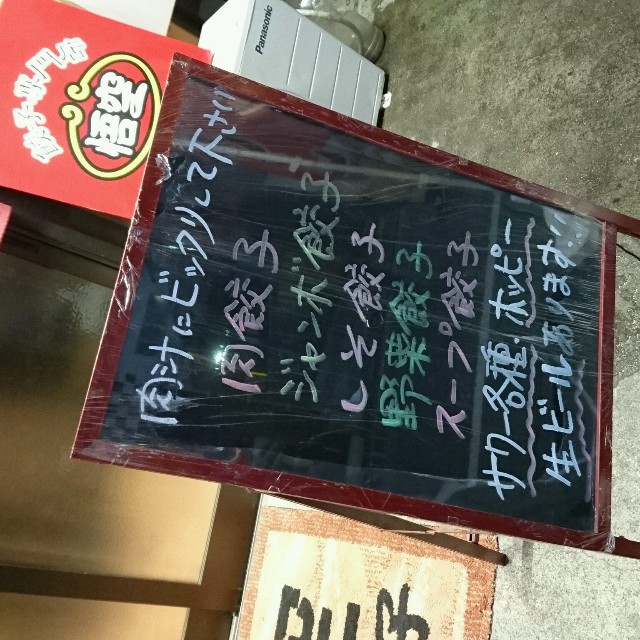 肉汁にビックリして下さい
肉餃子
ジャンボ餃子
しそ餃子
野菜餃子
スープ餃子
サワー各種・ホッピー
生ビールあります!!
悟空
Panasonic